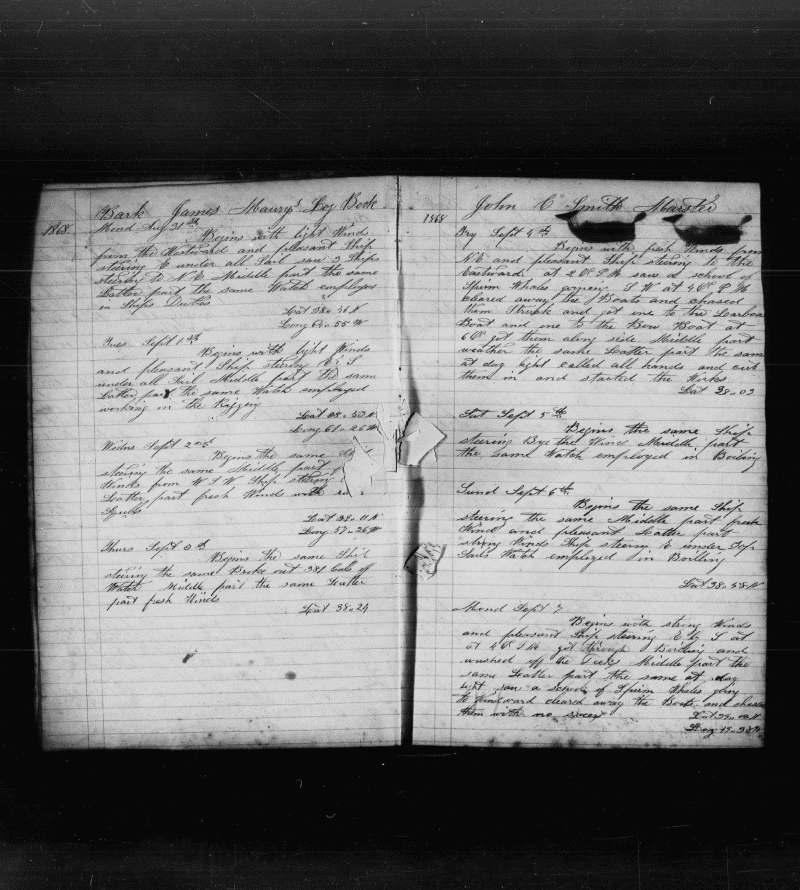 Bark James Maury's Log Book
1868
Mond Aug 31st
Begins with light Wind
from the Westward and pleasant Ship
steering E under all Sail saw 3 Ships
steering to N E Middle part the same
Latter part the same Watch employed
in Ships Duties
Lat 38..36 N
Long 55 W
Tues Sept 1st
Begins with light Winds
and pleasant Ship steering E & S
under all Sail Middle part the sam
Latter part the same Watch employed
working in the Rigging
Lat 38
Long 61..26 W
Wedns Sept 2nd
Begins the same
steering the same Middle part
Winds from W S W Ship steering
Latter part fresh Winds with
Squls
Lat 38..11 N
Long 57..26 W
Thurs Sept 3d
Begins the same Ship
steering the same Broke out 381 Gals of
Water Middle part the same Latter
part fresh Winds
Lat 38..24
John C Smith Marster
1868
Fry Sept 4th
Begins with fresh Winds from
N E and pleasant Ship steering to the
Eastward at 2 O P.M saw a school of
Spirm Whales S W at 4 O P M
cleared away the Boats and chased
them Struck and got one to the Larboard
Boat and one to the Bow Boat at
6 O got them along side Middle part
weather the same Latter part the same
at day light called all hands and cut
them in and started the Works
Lat 38..03
Sat Sept 5th
Begins the same Ship
steering Bye the Wind Middle part
the same Watch employed in Boiling
Sund Sept 6th
Begins the same Ship
steering the same Middle part fresh
Wind and pleasant Latter part
strong Winds Ship steering E under Top
Sails Watch employed in Boiling
Lat 38..58 N
Mond Sept 7
Begins with strong Winds
and pleasant Ship steering E by S at
at 4 O P M got through Boiling and
washed off the Middle part the
same Latter part the same at day
light saw a School of Spirm Whales going
to Windward cleared away the Boats and chased
them with no sucess
Lat 39
Long 49..38 W